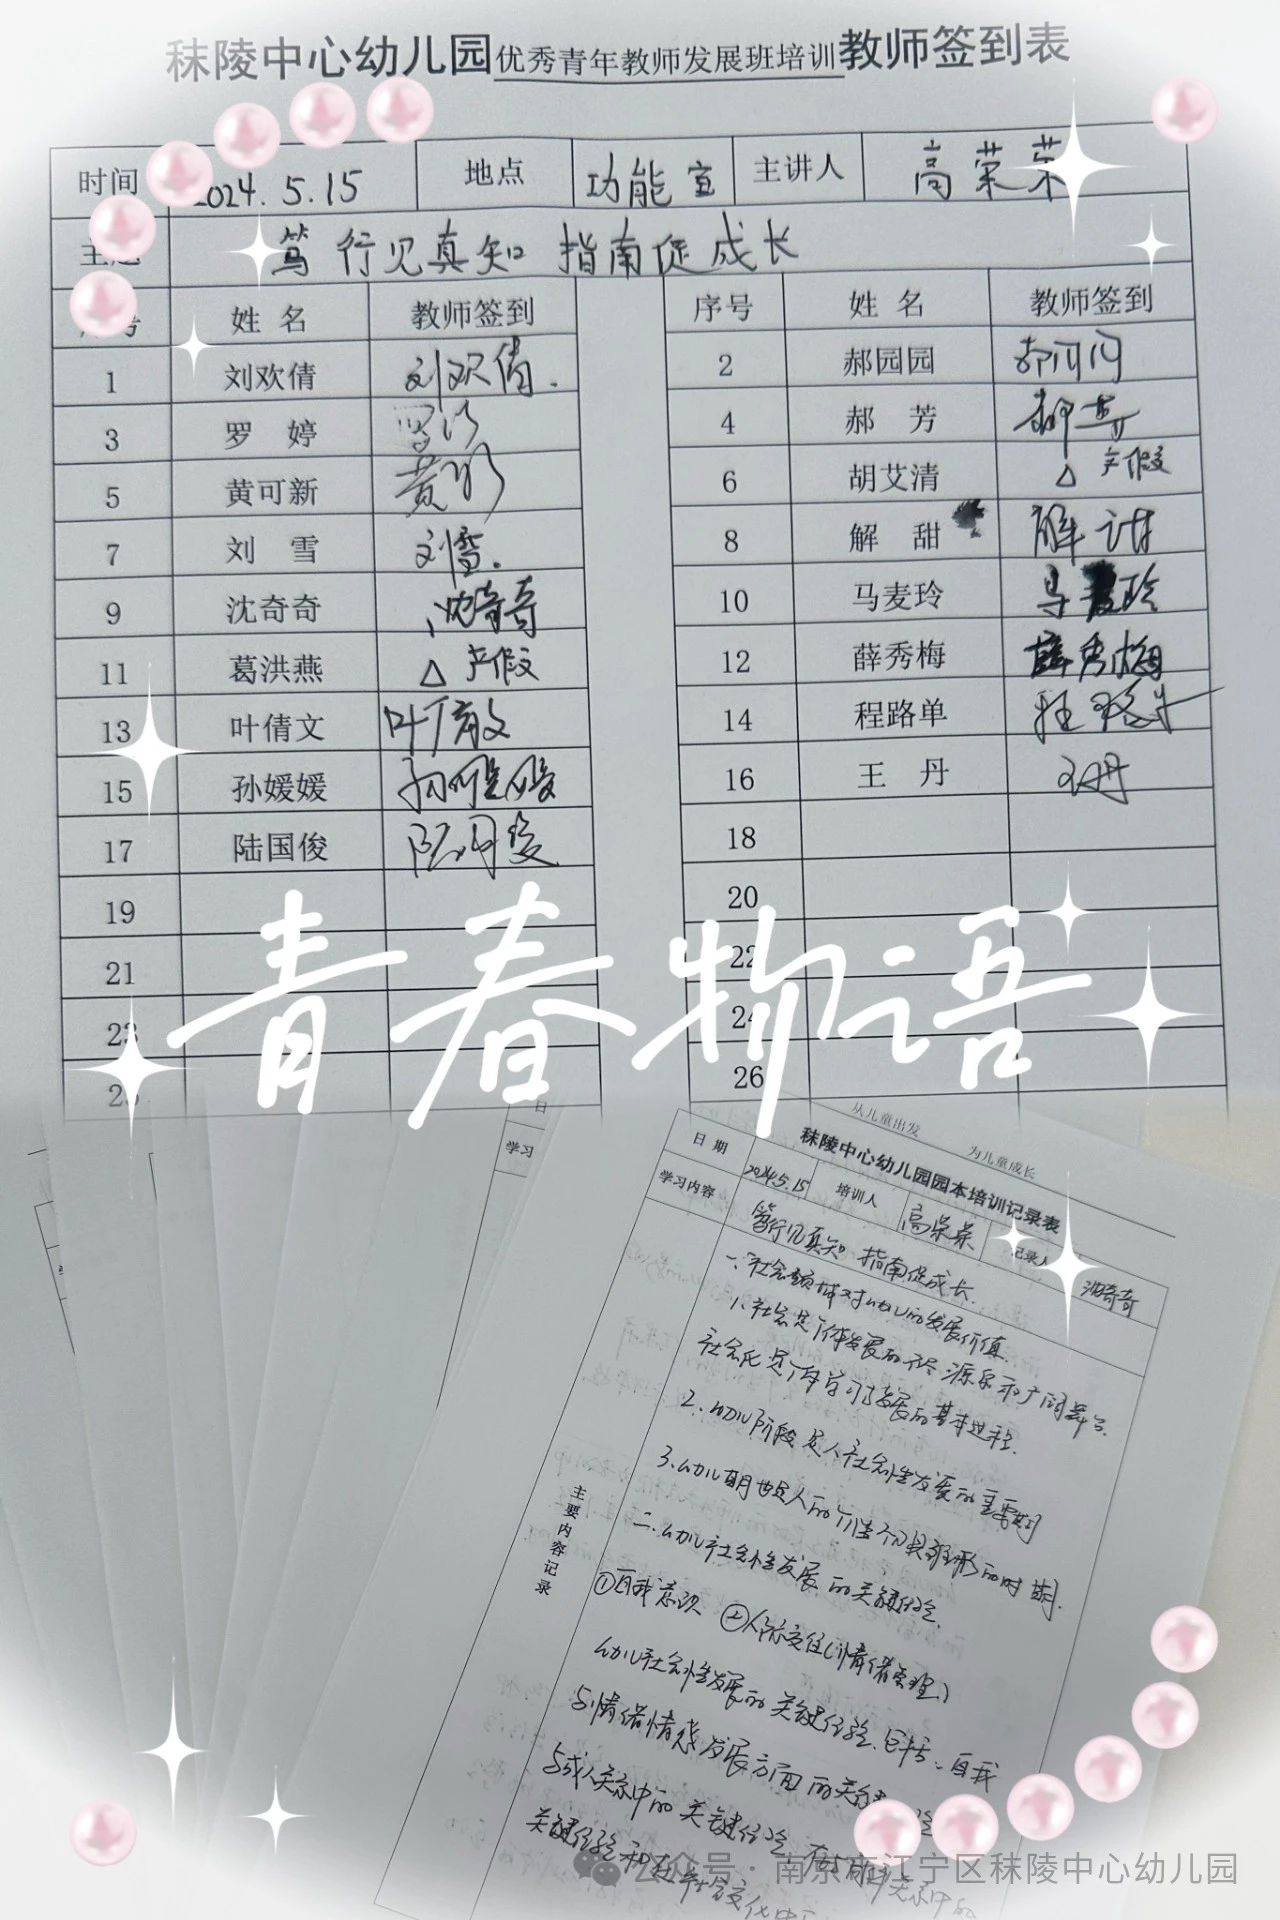 秣陵中心幼儿园优秀青年教师发展班培训教师签到表
时间 2024.5.15 地点 功能室 主讲人 高荣荣
主题 笃行见真知 指南促成长
序号 姓名 教师签到 序号 姓名 教师签到
1 刘欢倩 刘欢倩. 2 郝园园 郝园园
3 罗婷 罗婷 4 郝芳 郝芳
5 黄可新 黄可新 6 胡艾清 △ 产假
7 刘雪 刘雪. 8 解甜 解甜
9 沈奇奇 沈奇奇 10 马麦玲 马麦玲
11 葛洪燕 △ 产假 12 薛秀梅 薛秀梅
13 叶倩文 叶倩文 14 程路单 程路单
15 孙媛媛 孙媛媛 16 王丹 王丹
17 陆国俊 陆国俊 18
19 20
21 22
23 24
25 26
青春物语
日
学习
从儿童出发 为儿童成长
秣陵中心幼儿园园本培训记录表
日期 2024.5.15 培训人 高荣荣 记录人 沈奇奇
学习内容 笃行见真知 指南促成长.
主要内容记录
一.社会领域对幼儿的发展价值.
1.社会是个体发展的 源泉和广阔舞台.
社会化是个体学习与发展的基本过程.
2.幼儿阶段是人社会性发展的重要期
3.幼儿期也是人的个性初具雏形的时期.
二.幼儿社会性发展的关键经验.
①自我意识 ②人际交往(情绪管理)
幼儿社会性发展的关键经验.包括:自我
与情绪情感发展方面的关键经验
与成人关系中的关键经验.在与同伴关系中的
关键经验和在社会文化中
公众号·南京市江宁区秣陵中心幼儿园